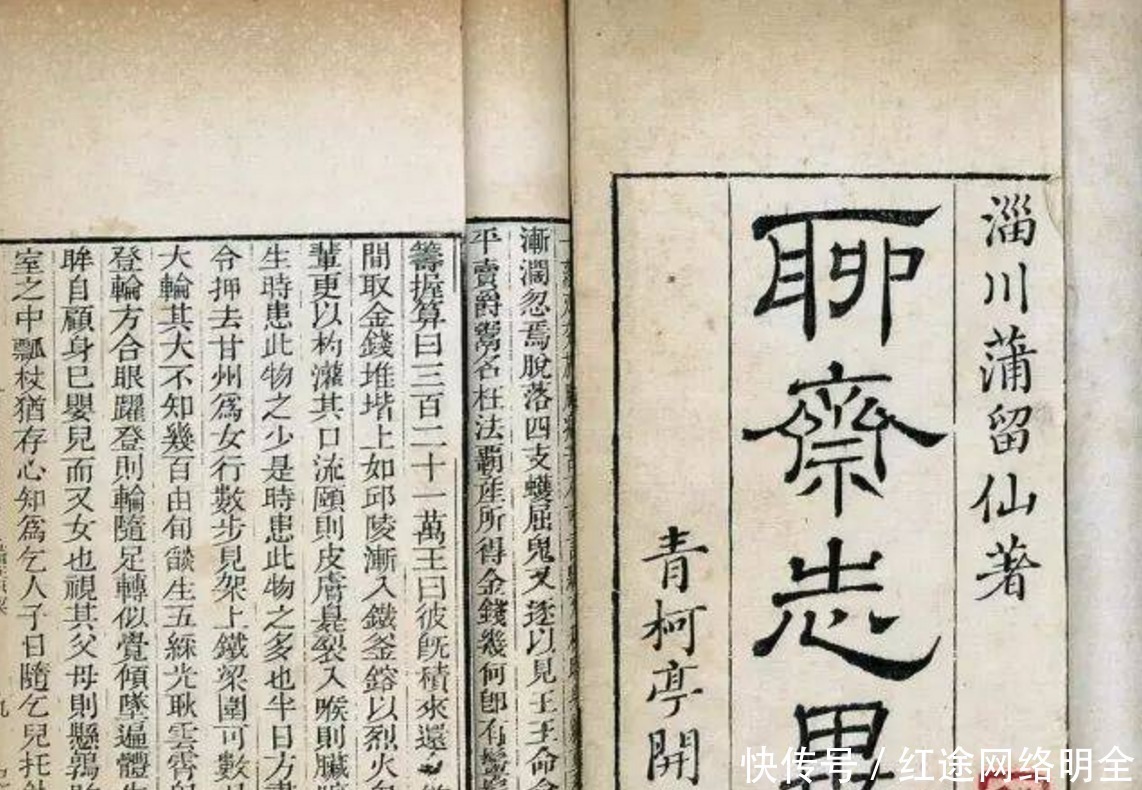 淄川蒲留仙著
聊齋志異
青柯亭開
漸瀾忽焉脫落四支蠖屈鬼又逐以見王王命會
平賣爵鬻名枉法霸産所得金錢幾何卽有鬅
籌握算曰三百二十一萬王曰彼旣積來還
間取金錢堆堦上如邱陵漸入鐵釜鎔以烈火
輩更以杓灌其口流頤則皮膚臭裂入喉則臟
生時患此物之少是時患此物之多也半日方
令押去甘州爲女行數步見架上鐵梁圍可數
大輪其大不知幾百由旬燄生五綵光耿雲霄
登輪方合眼躍登則輪隨足轉似覺傾墜遍體
眸自顧身已嬰兒而又女也視其父母則懸鶉
室之中瓢杖猶存心知爲乞人子日隨乞兒托
快传号/红途网络明全